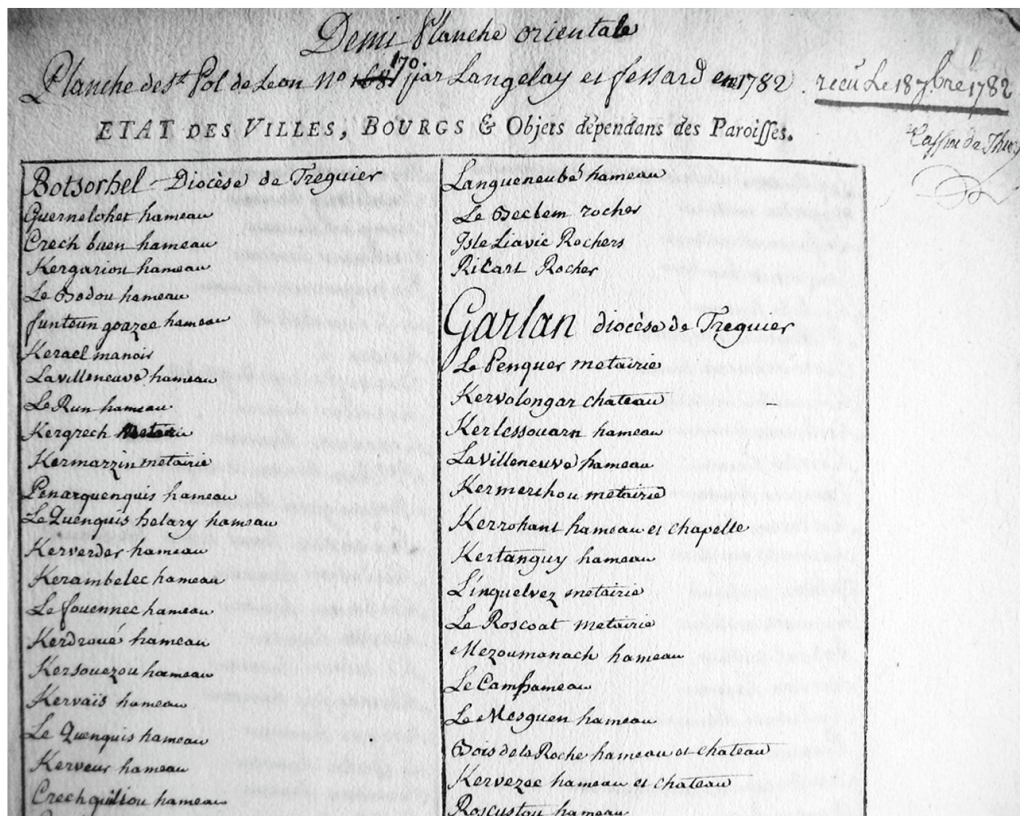 Demi Planche orientale
Planche de St. Pol de Leon No 170. par Langelay et fessard en 1782. recu Le 18 7bre 1782
Cassini de Thury
ETAT DES VILLES, BOURGS & Objets dépendans des Paroisses.
Botsorhel - Diocèse de Treguier
Guernelohet hameau
Crech buen hameau
Kergariou hameau
Le Bodou hameau
funteun goazee hameau
Kerael manoir
Lavilleneuve hameau
Le Run hameau
Kergrech
Kermarzin metairie
Penarquenquis hameau
Le Quenquis helary hameau
Kerverder hameau
Kerambelec hameau
Le fouennec hameau
Kerdroué hameau
Kersouezou hameau
Kervaïs hameau
Le Quenquis hameau
Kerveur hameau
Crechquiliou hameau
Langueneubé hameau
Le Beclem rocher
Isle Liavic Rochers
Ricart Rocher
Garlan diocèse de Treguier
Le Penquer metairie
Kervolongar chateau
Kerlessouarn hameau
Lavilleneuve hameau
Kermerchou metairie
Kerrohant hameau et chapelle
Kertanguy hameau
Linguelvez metairie
Le Roscoat metairie
Mezoumanach hameau
Le Camhameau
Le Mesguen hameau
Bois de la Roche hameau et chateau
Kervezec hameau et chateau
Roscustou hameau